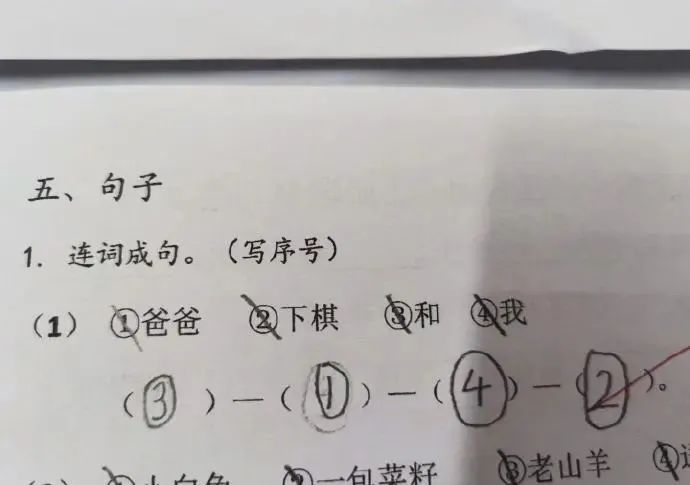 五、句子
1. 连词成句。（写序号）
（1） ①爸爸 ②下棋 ③和 ④我
（③）—（①）—（④）—（②）。
②一包菜籽 ③老山羊 ④